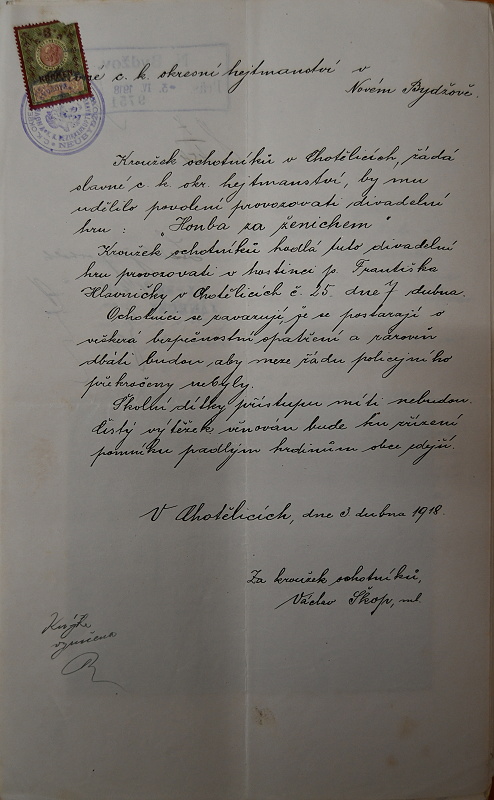 né c. k. okresní hejtmanství v
Novém Bydžově.
Kroužek ochotníků v Chotělicích, žádá
slavné c. k. okr. hejtmanství, by mu
udělilo povolení provozovati divadelní
hru : „Honba za ženichem"
Kroužek ochotníků hodlá tuto divadelní
hru provozovati v hostinci p. Františka
Hlavničky v Chotělicích č. 25. dne 7 dubna.
Ochotníci se zavazují, že se postarají o
viškerá bezpečnostní opatření a zároveň
dbáti budou, aby meze řádu policejního
překročeny nebyly.
Školní dítky přístupu míti nebudou.
Čistý výtěžek věnován bude ku zřízení
pomníku padlým hrdinům obce zdejší.
V Chotělicích, dne 3 dubna 1918.
Za kroužek ochotníků,
Václav Škop, ml.
Bydžov
3. IV. 1918
9751